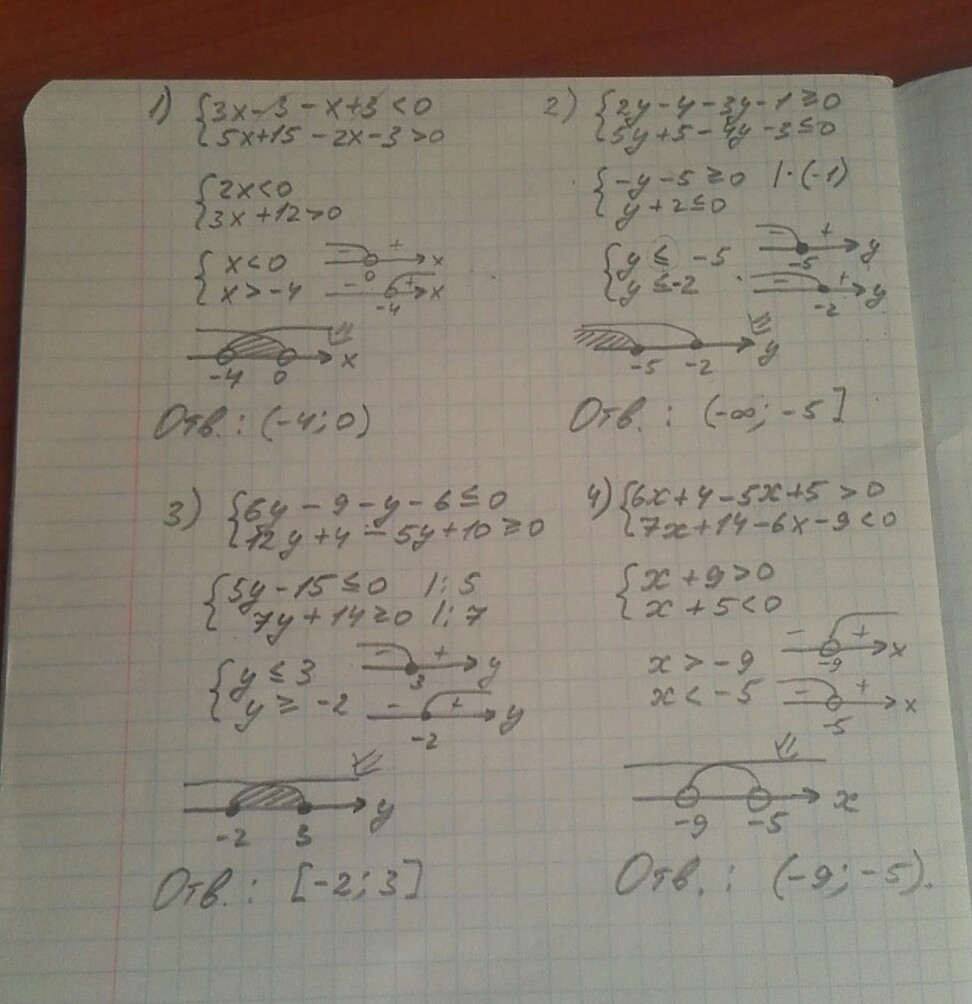 1) {3x-3-x+3<0
{5x+15-2x-3>0
{2x<0
{3x+12>0
{x<0
- + 0 x
{x>-4
- + -4 x
-4 0 x
Отв.: (-4; 0)
2) {2y-4-3y-1≥0
{5y+5-4y-3≤0
{-y-5≥0 |·(-1)
{y+2≤0
{y≤-5
- + -5 y
{y≤-2
- + -2 y
-5 -2 y
Отв.: (-∞; -5]
3) {6y-9-y-6≤0
{12y+4-5y+10≥0
{5y-15≤0 |:5
{7y+14≥0 |:7
{y≤3
- + 3 y
{y≥-2
- + -2 y
-2 3 y
Отв.: [-2; 3]
4) {6x+4-5x+5>0
{7x+14-6x-9<0
{x+9>0
{x+5<0
x>-9
- + -9 x
x<-5
- + -5 x
-9 -5 x
Отв.: (-9; -5).